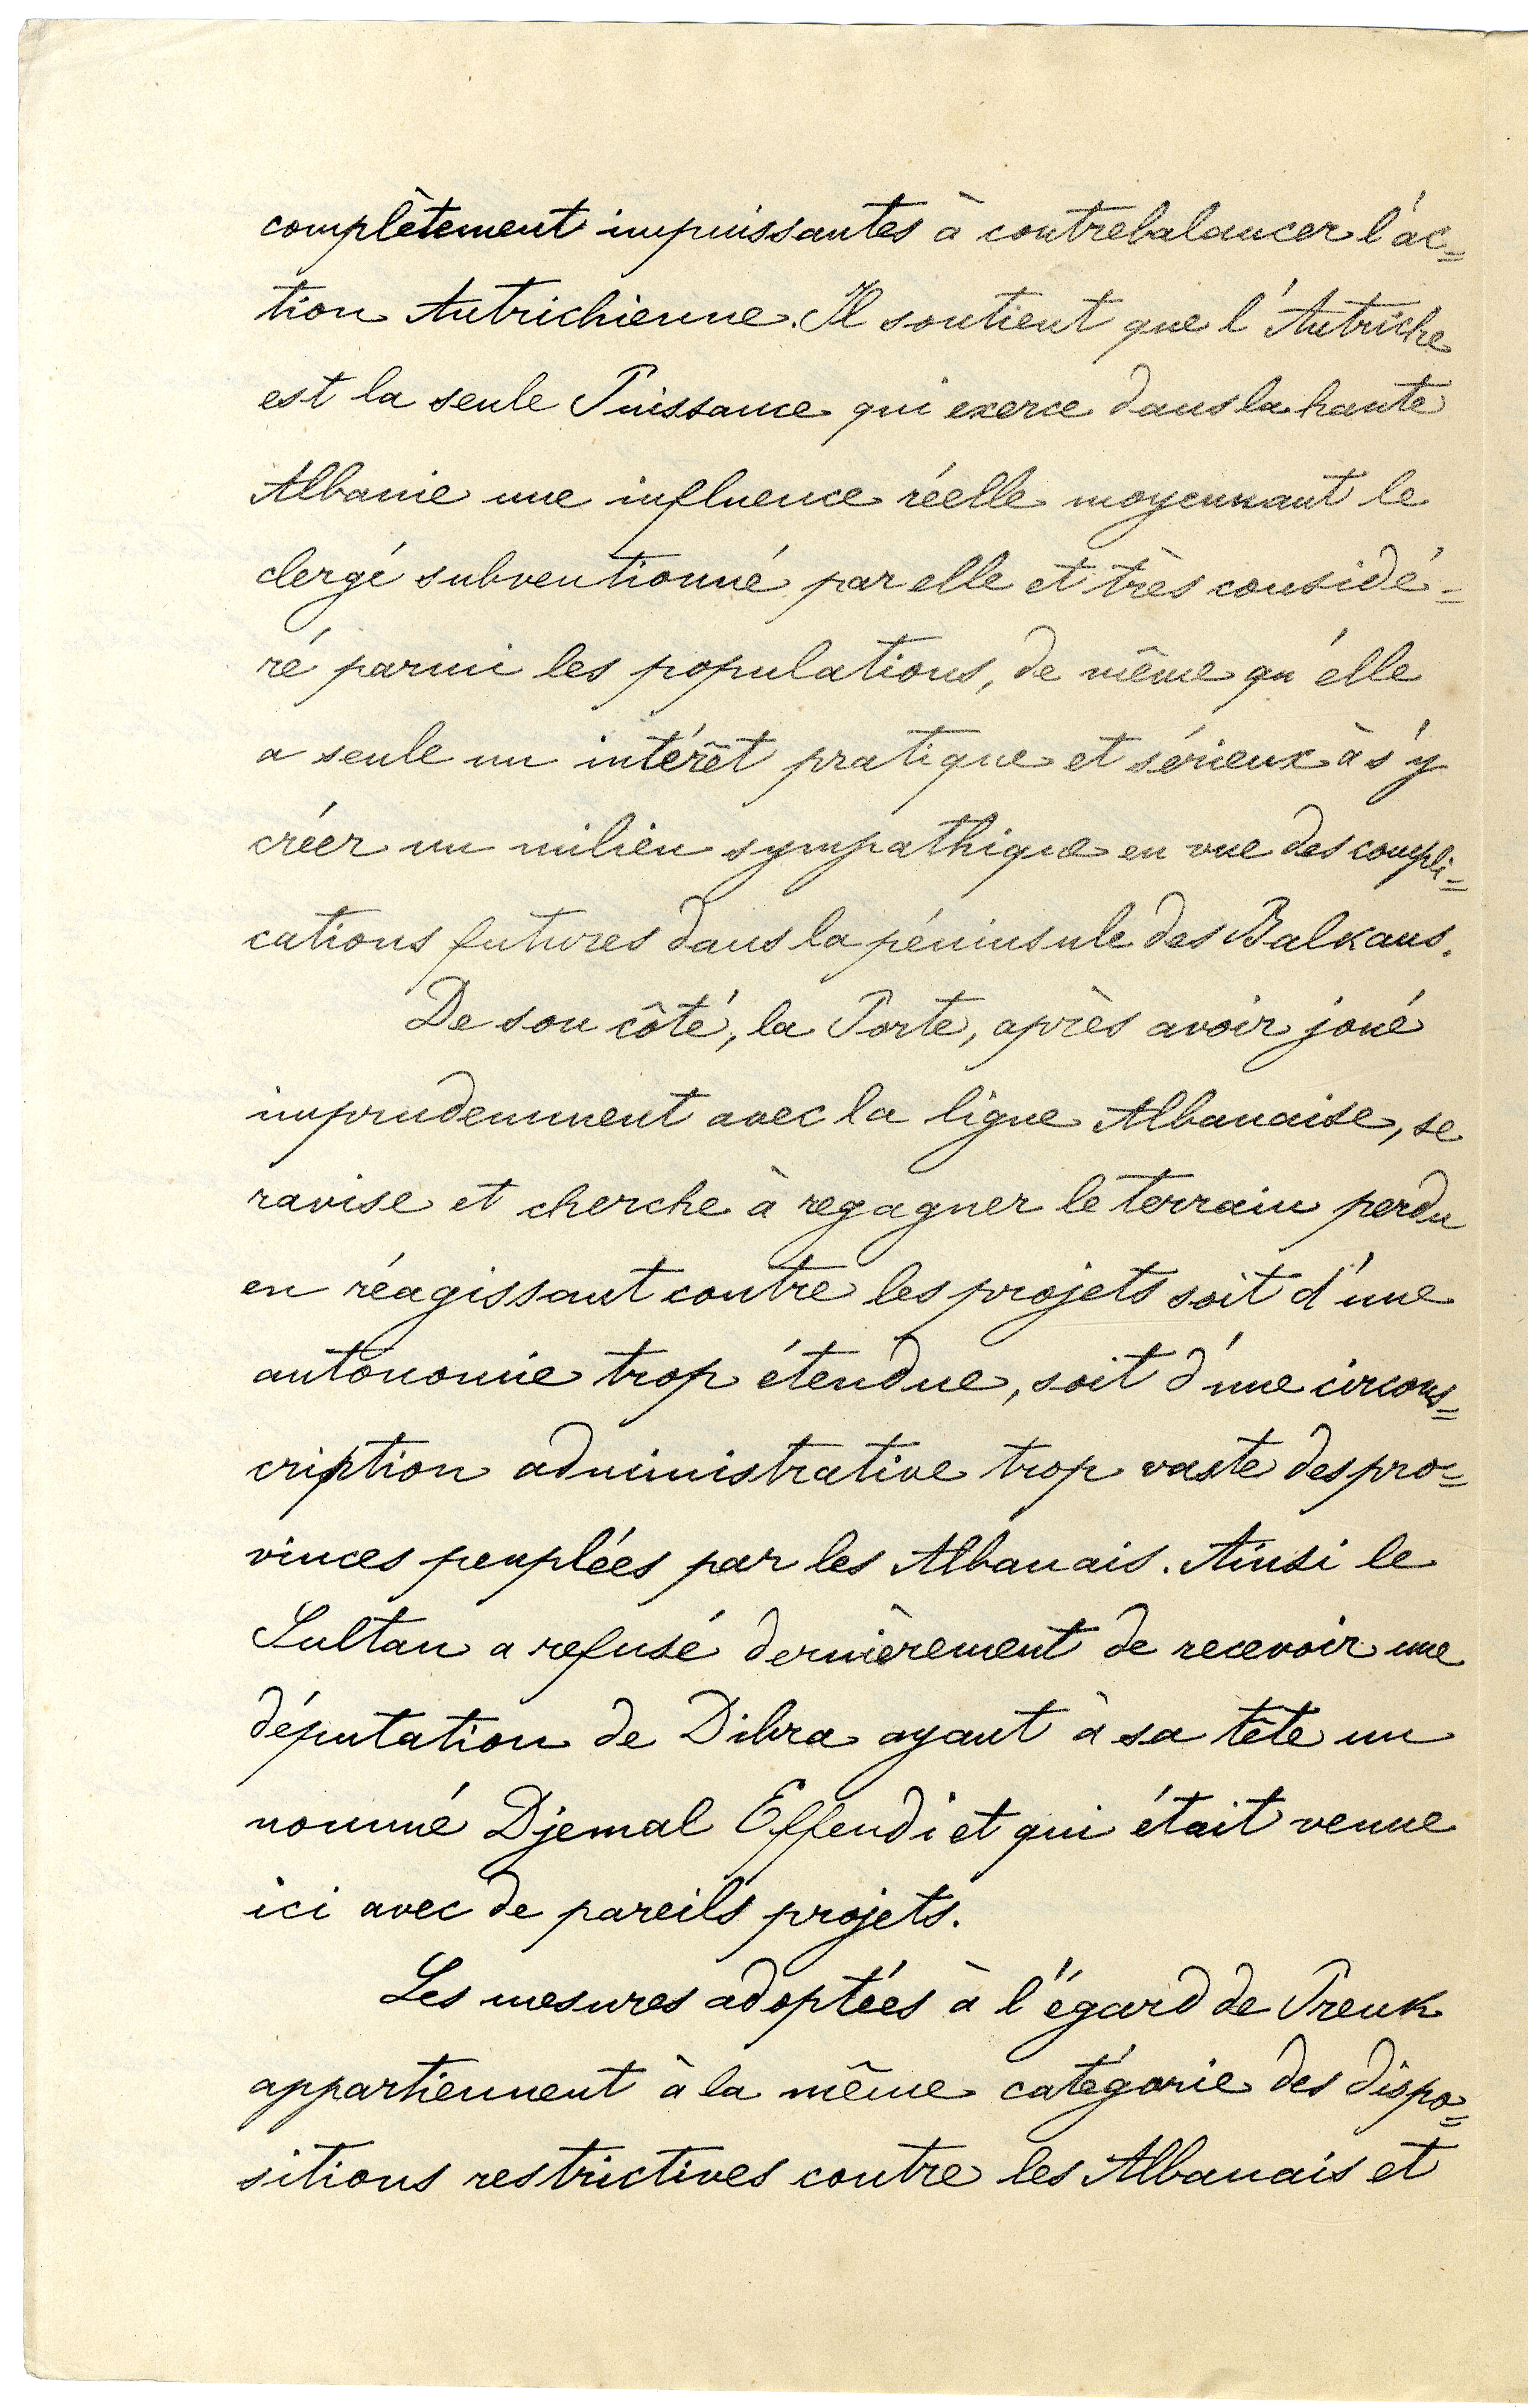 complètement impuissantes à contrebalancer l'ac=
tion Autrichienne. Il soutient que l'Autriche
est la seule Puissance qui exerce dans la haute
Albanie une influence réelle moyennant le
clergé subventionné par elle et très considé=
ré parmi les populations, de même qu'elle
a seule un intérêt pratique et sérieux à s'y
créer un milieu sympathique en vue des compli=
cations futures dans la péninsule des Balkans.
De son côté, la Porte, après avoir joué
imprudemment avec la ligue Albanaise, se
ravise et cherche à regagner le terrain perdu
en réagissant contre les projets soit d'une
autonomie trop étendue, soit d'une circons=
cription administrative trop vaste des pro=
vinces peuplées par les Albanais. Ainsi le
Sultan a refusé dernièrement de recevoir une
députation de Dibra ayant à sa tête un
nommé Djemal Effendi et qui était venue
ici avec de pareils projets.
Les mesures adoptées à l'égard de Prenk
appartiennent à la même catégorie des dispo=
sitions restrictives contre les Albanais et